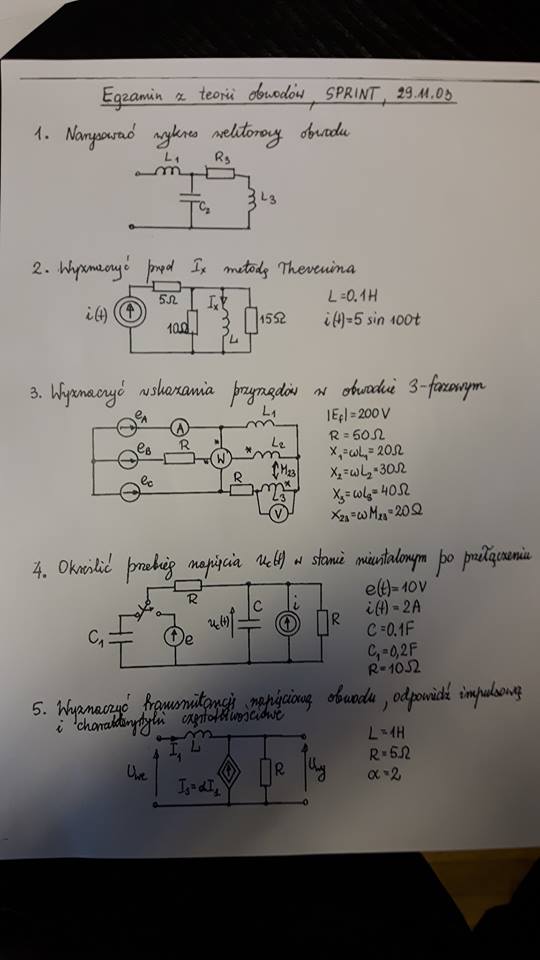 Egzamin z teorii obwodów, SPRINT, 29.11.03
1. Narysować wykres wektorowy obwodu
L₁ R₃
C₂ L₃
2. Wyznaczyć prąd Iₓ metodą Thevenina
i(t) 5Ω 10Ω Iₓ L 15Ω
L=0.1H
i(t)=5 sin 100t
3. Wyznaczyć wskazania przyrządów w obwodzie 3-fazowym
e_A A L₁
e_B R * * W * L₂
M₂₃
e_C R L₃ *
V
|E_f|=200V
R=50Ω
X₁=ωL₁=20Ω
X₂=ωL₂=30Ω
X₃=ωL₃=40Ω
X₂₃=ωM₂₃=20Ω
4. Określić przebieg napięcia u_c(t) w stanie nieustalonym po przełączeniu
R
C₁ e u_c(t) C i R
e(t)=10V
i(t)=2A
C=0.1F
C₁=0,2F
R=10Ω
5. Wyznaczyć transmitancję napięciową obwodu, odpowiedź impulsową
i charakterystyki częstotliwościowe
I₁ L
U_we I_s=αI₁ R U_wy
L=1H
R=5Ω
α=2